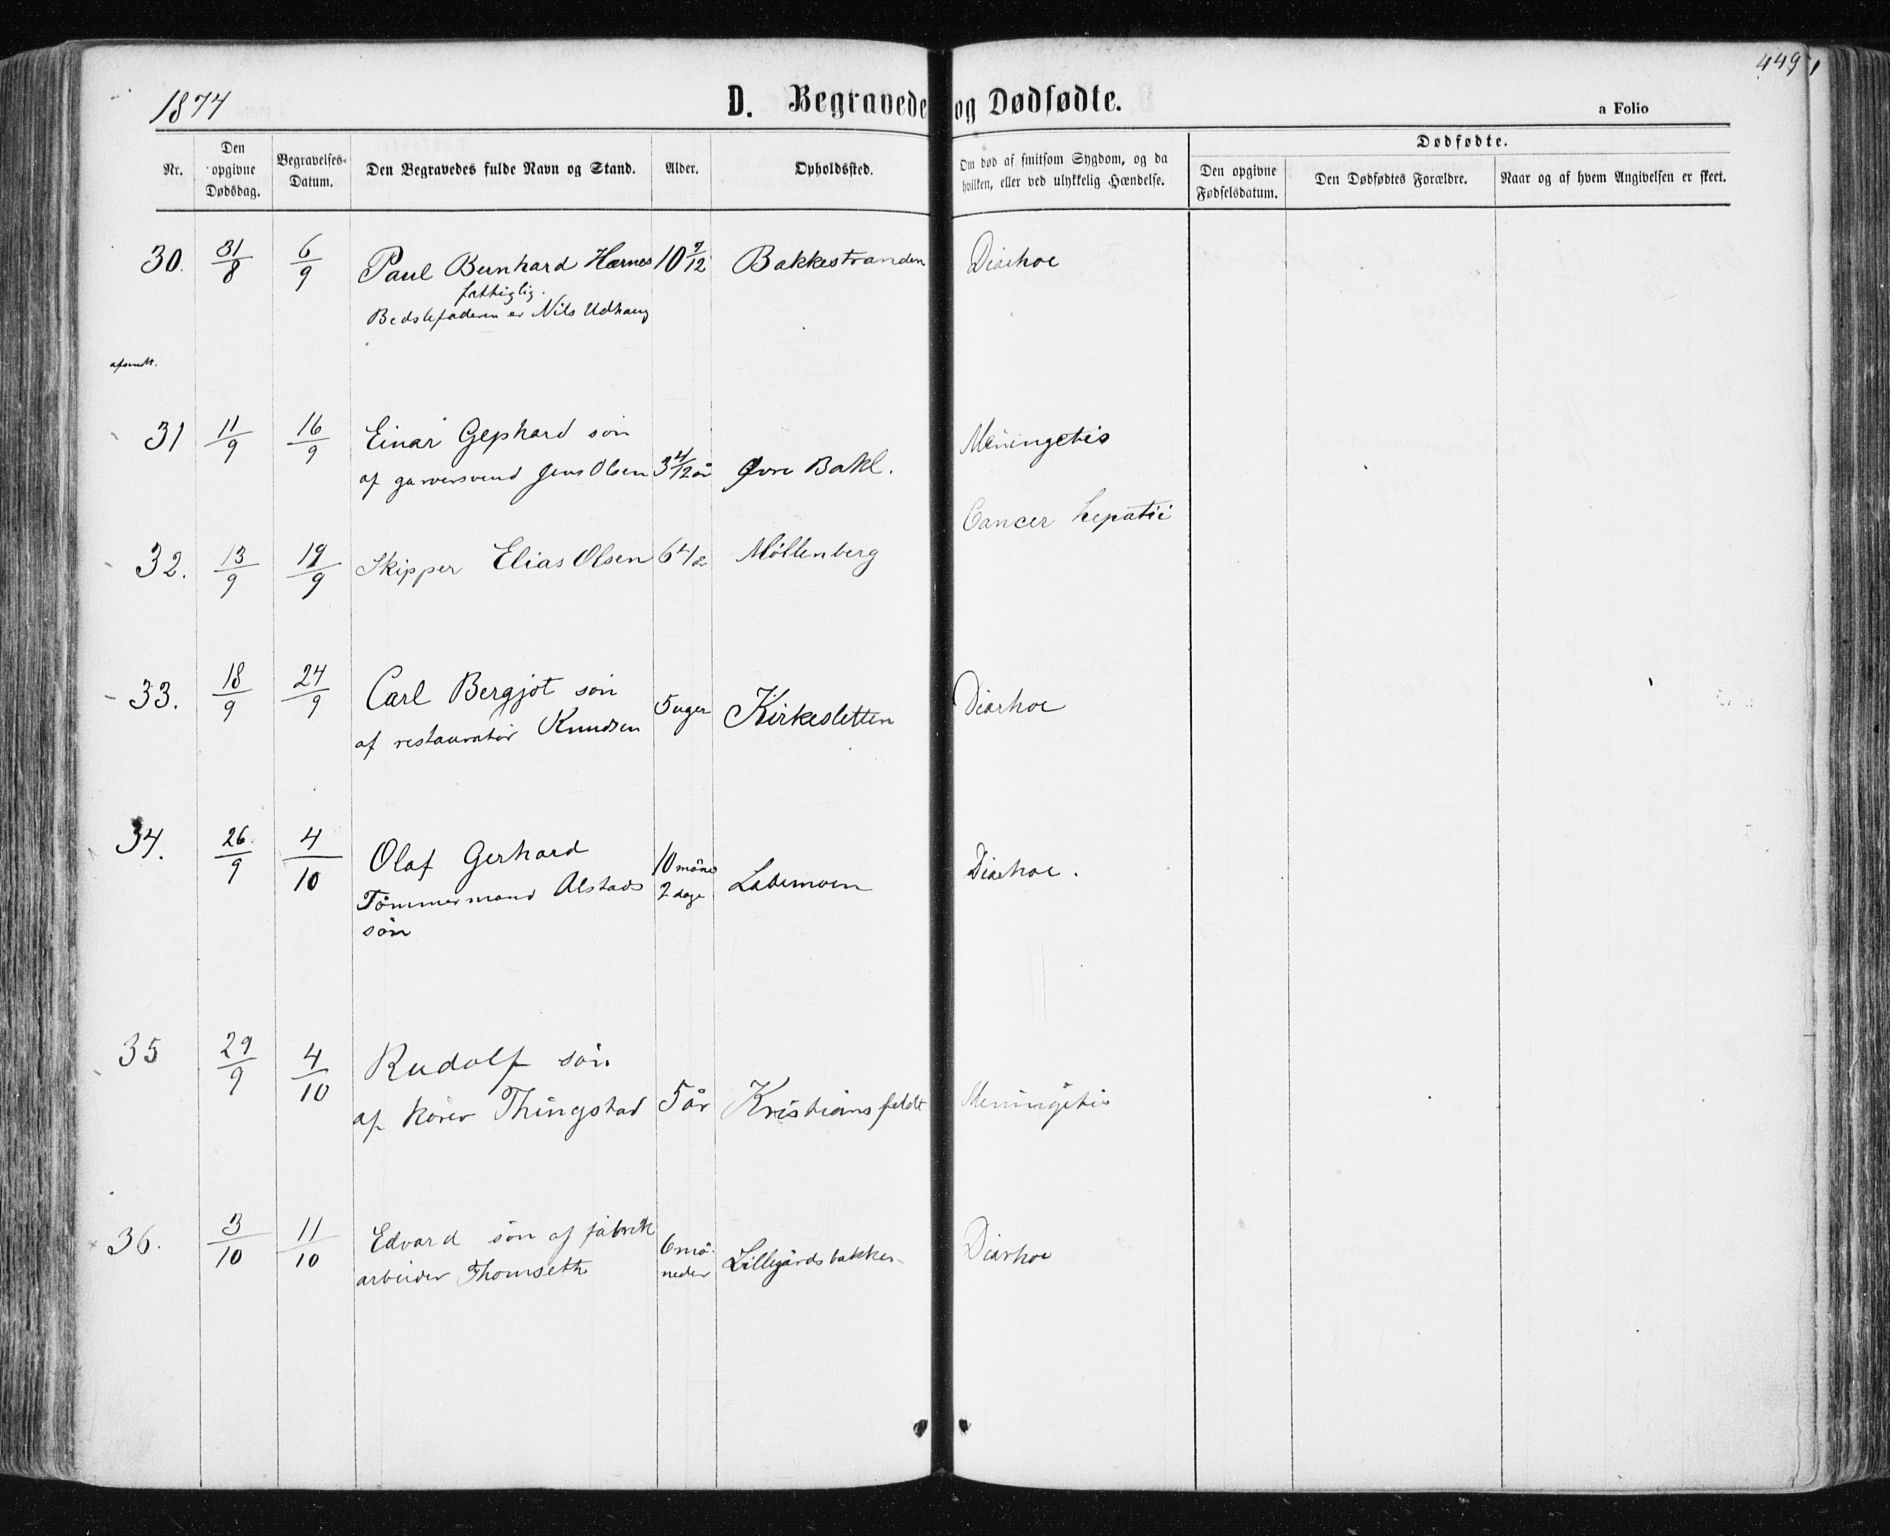 1874
D. Begravede og Dødfødte.
449
a Folio
Nr.
Den opgivne Dødsdag.
Begravelses-Datum.
Den Begravedes fulde Navn og Stand.
Alder.
Opholdssted.
Om død af smitsom Sygdom, og da hvilken, eller ved ulykkelig Hændelse.
Dødfødte.
Den opgivne Fødselsdatum.
Den Dødfødtes Forældre.
Naar og af hvem Angivelsen er skeet.
30. 31/8 6/9 Paul Bernhard Hernes 10 9/12 Bakkestranden Diarhoe
fattiglig.
Bedstefaderen er Nils Udhaug
31 11/9 16/9 Einar Gephard sön Meningetis
af garversvend Jens Olsen 3 4/12 år Øvre Bakl.
Cancer hepatii
32. 13/9 19/9 Skipper Elias Olsen 64 1/2 Möllenberg
33. 18/9 24/9 Carl Bergjöt sön 5 uger Kirkesletten Diarhoe
af restauratör Knudsen
34. 26/9 4/10 Olaf Gerhard 10 månd Lademoen Diarhoe.
Tömmermand Alstads 2 dage
sön
35 29/9 4/10 Rudolf sön
af körer Thingstad 5 år Kristiansfeldt Meningetis
36. 3/10 11/10 Edvard sön af fabrik 6 må- Lillegårdsbakken Diarhoe
arbeider Thomseth neder